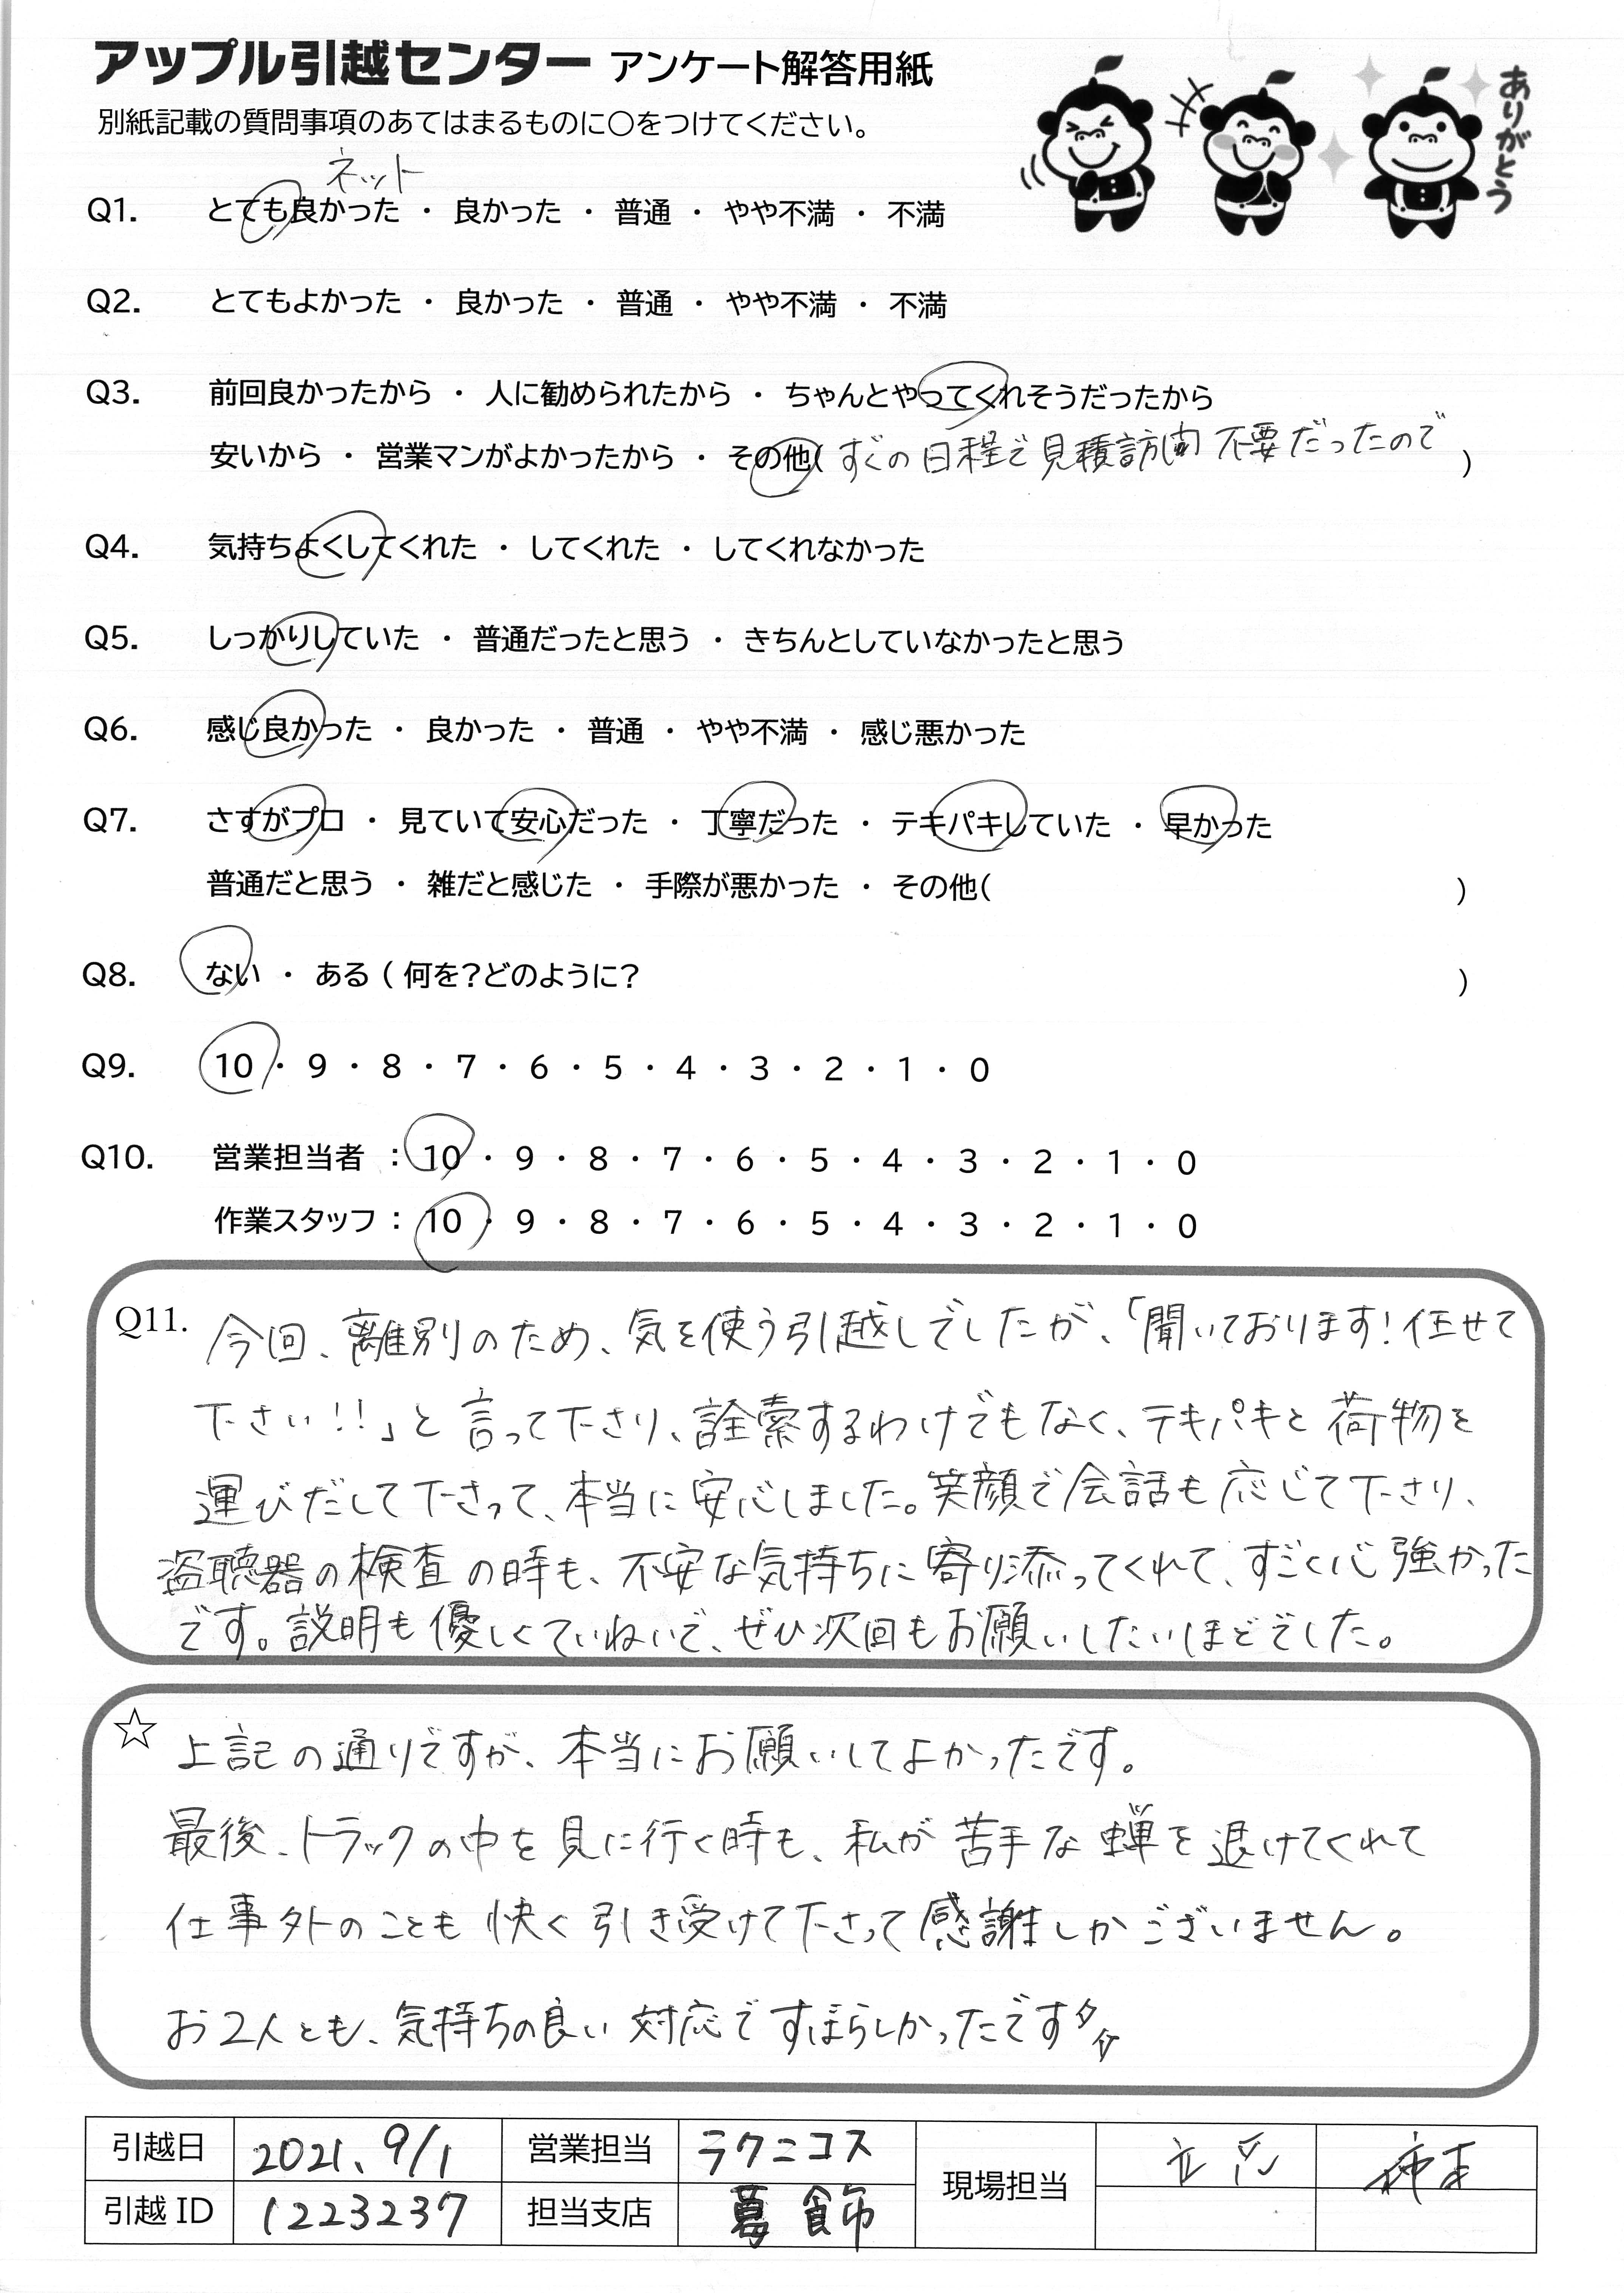 アップル引越センター アンケート解答用紙
別紙記載の質問事項のあてはまるものに○をつけてください。
ありがとう
ネット
Q1. とても良かった ・ 良かった ・ 普通 ・ やや不満 ・ 不満
Q2. とてもよかった ・ 良かった ・ 普通 ・ やや不満 ・ 不満
Q3. 前回良かったから ・ 人に勧められたから ・ ちゃんとやってくれそうだったから
安いから ・ 営業マンがよかったから ・ その他( すぐの日程で見積訪問不要だったので )
Q4. 気持ちよくしてくれた ・ してくれた ・ してくれなかった
Q5. しっかりしていた ・ 普通だったと思う ・ きちんとしていなかったと思う
Q6. 感じ良かった ・ 良かった ・ 普通 ・ やや不満 ・ 感じ悪かった
Q7. さすがプロ ・ 見ていて安心だった ・ 丁寧だった ・ テキパキしていた ・ 早かった
普通だと思う ・ 雑だと感じた ・ 手際が悪かった ・ その他( )
Q8. ない ・ ある ( 何を?どのように? )
Q9. 10 ・ 9 ・ 8 ・ 7 ・ 6 ・ 5 ・ 4 ・ 3 ・ 2 ・ 1 ・ 0
Q10. 営業担当者 : 10 ・ 9 ・ 8 ・ 7 ・ 6 ・ 5 ・ 4 ・ 3 ・ 2 ・ 1 ・ 0
作業スタッフ : 10 ・ 9 ・ 8 ・ 7 ・ 6 ・ 5 ・ 4 ・ 3 ・ 2 ・ 1 ・ 0
Q11. 今回、離別のため、気を使う引越しでしたが、「聞いております!任せて
下さい!!」と言って下さり、詮索するわけでもなく、テキパキと荷物を
運びだして下さって、本当に安心しました。笑顔で会話も応じて下さり、
盗聴器の検査の時も、不安な気持ちに寄り添ってくれて、すごく心強かった
です。説明も優しくていねいで、ぜひ次回もお願いしたいほどでした。
☆ 上記の通りですが、本当にお願いしてよかったです。
最後、トラックの中を見に行く時も、私が苦手な蝉を退けてくれて
仕事外のことも快く引き受けて下さって感謝しかございません。
お2人とも、気持ちの良い対応ですばらしかったです
引越日 2021、9/1 営業担当 ラクニコス 現場担当
引越 ID 1223237 担当支店 葛飾